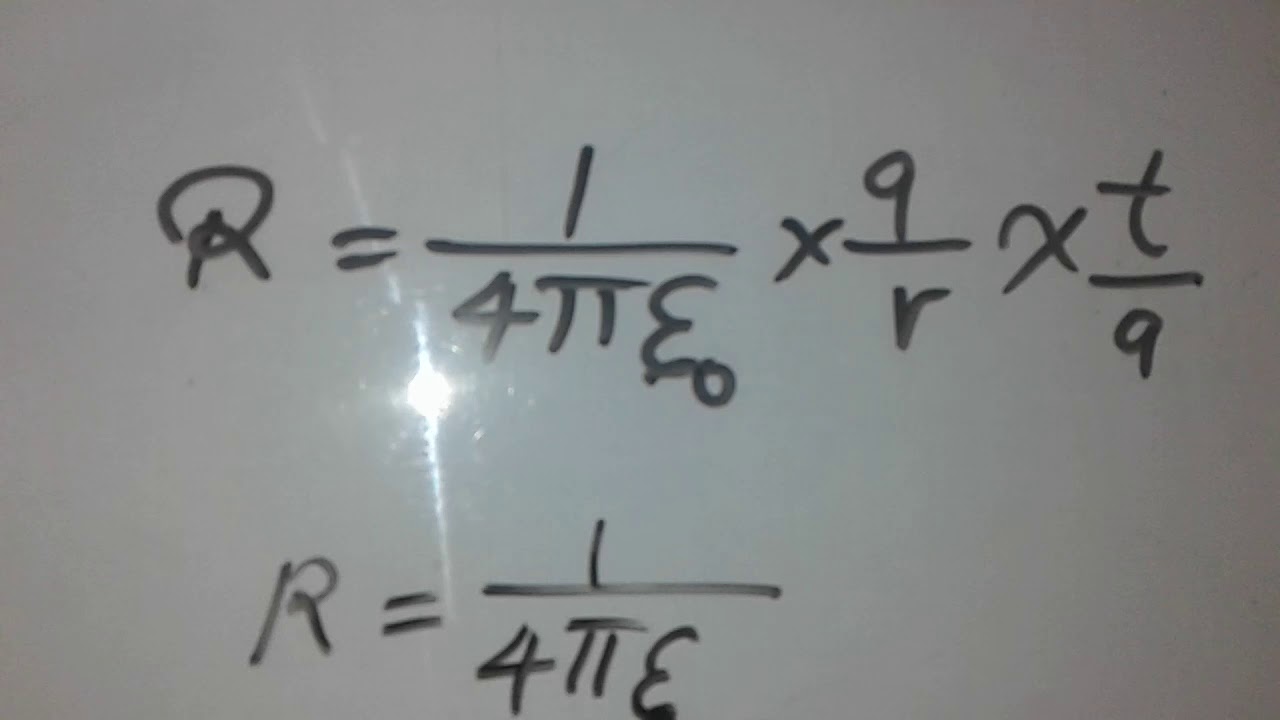 R = 1/4πε₀ × q/r × t/q
R = 1/4πε